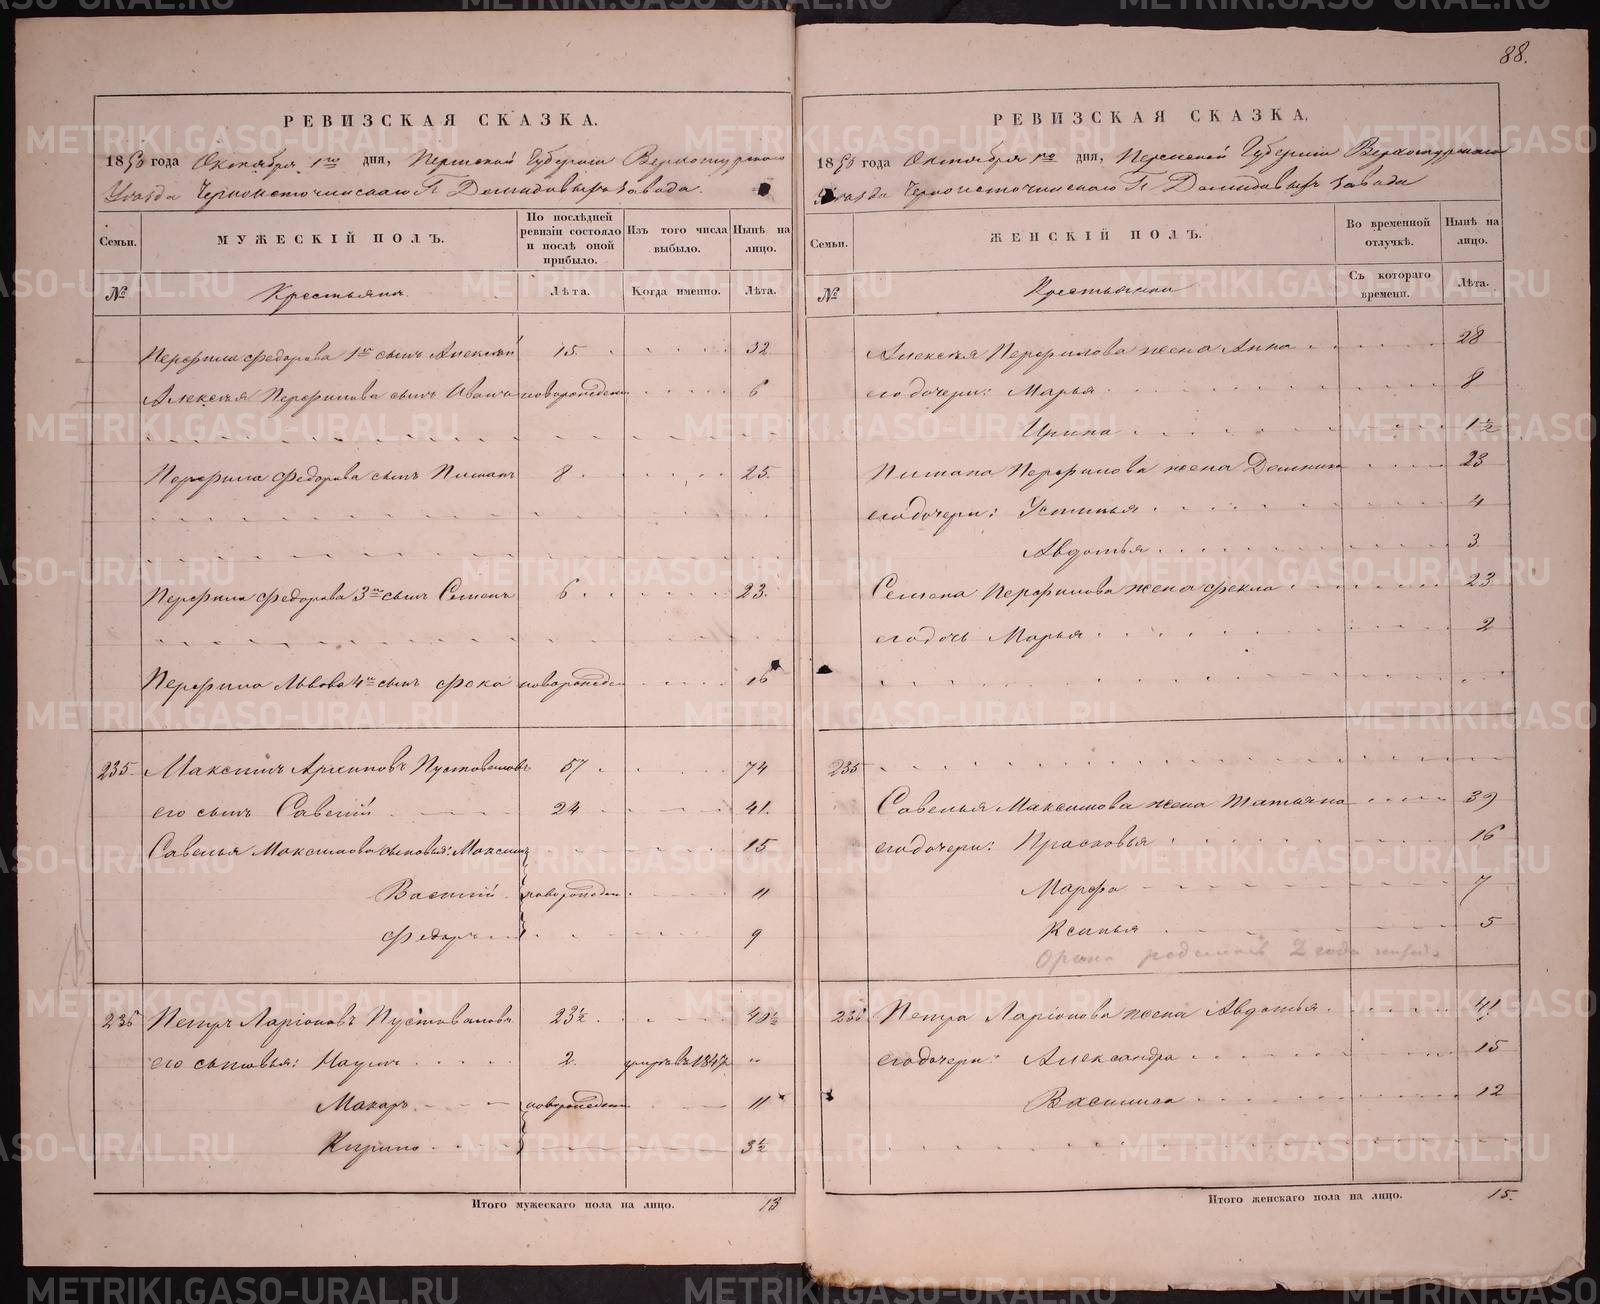 88.
РЕВИЗСКАЯ СКАЗКА.
1850 года Октября 1го дня, Пермской Губернiи Верхотурскаго
Уѣзда Черноисточинскаго Г. Г. Демидовыхъ завода.
Семьи. МУЖЕСКIЙ ПОЛЪ. По послѣдней ревизiи состояло и послѣ оной прибыло. Изъ того числа выбыло. Нынѣ на лицо.
№ Крестьяне. Лѣта. Когда именно. Лѣта.
Перфила Федорова 1й сынъ Алексѣй 15. 32
Алексѣя Перфилова сынъ Иванъ новорожден 6
Перфила Федорова сынъ Пиманъ 8 25.
Перфила Федорова 3й сынъ Семенъ 6 23.
Перфила Львова 4й сынъ Фока новорожден 16
235. Максимъ Архиповъ Пустоваловъ 57. 74
его сынъ Савелiй 24 41.
Савелья Максимова сыновья: Максимъ 15
Василiй новорожден 11
Федоръ 9
236 Петръ Ларiоновъ Пустоваловъ 23½ 40½
его сыновья: Наумъ 2. умеръ въ 1847
Макаръ новорожден 11
Кирило 3½
Итого мужескаго пола на лицо. 13
РЕВИЗСКАЯ СКАЗКА.
1850 года Октября 1го дня, Пермской Губернiи Верхотурскаго
Уѣзда Черноисточинскаго Г. Г. Демидовыхъ завода
Семьи. ЖЕНСКIЙ ПОЛЪ. Во временной отлучкѣ. Нынѣ на лицо.
№ Крестьянки Съ котораго времени. Лѣта.
Алексѣя Перфилова жена Анна 28
его дочери: Марья 8
Ирина 1½
Пимана Перфилова жена 23
его дочери: Устинья 4
Авдотья 3.
Семена Перфилова жена Фекла 23
его дочь Марья 2
235
Савелья Максимова жена Татьяна 39
его дочери: Прасковья 16
Марфа 7
Ксинья 5
Орина родилась 2 года
236 Петра Ларiонова жена Авдотья 41
его дочери: Александра 15
Василиса 12
Итого женскаго пола на лицо. 15.
METRIKI.GASO-URAL.RU